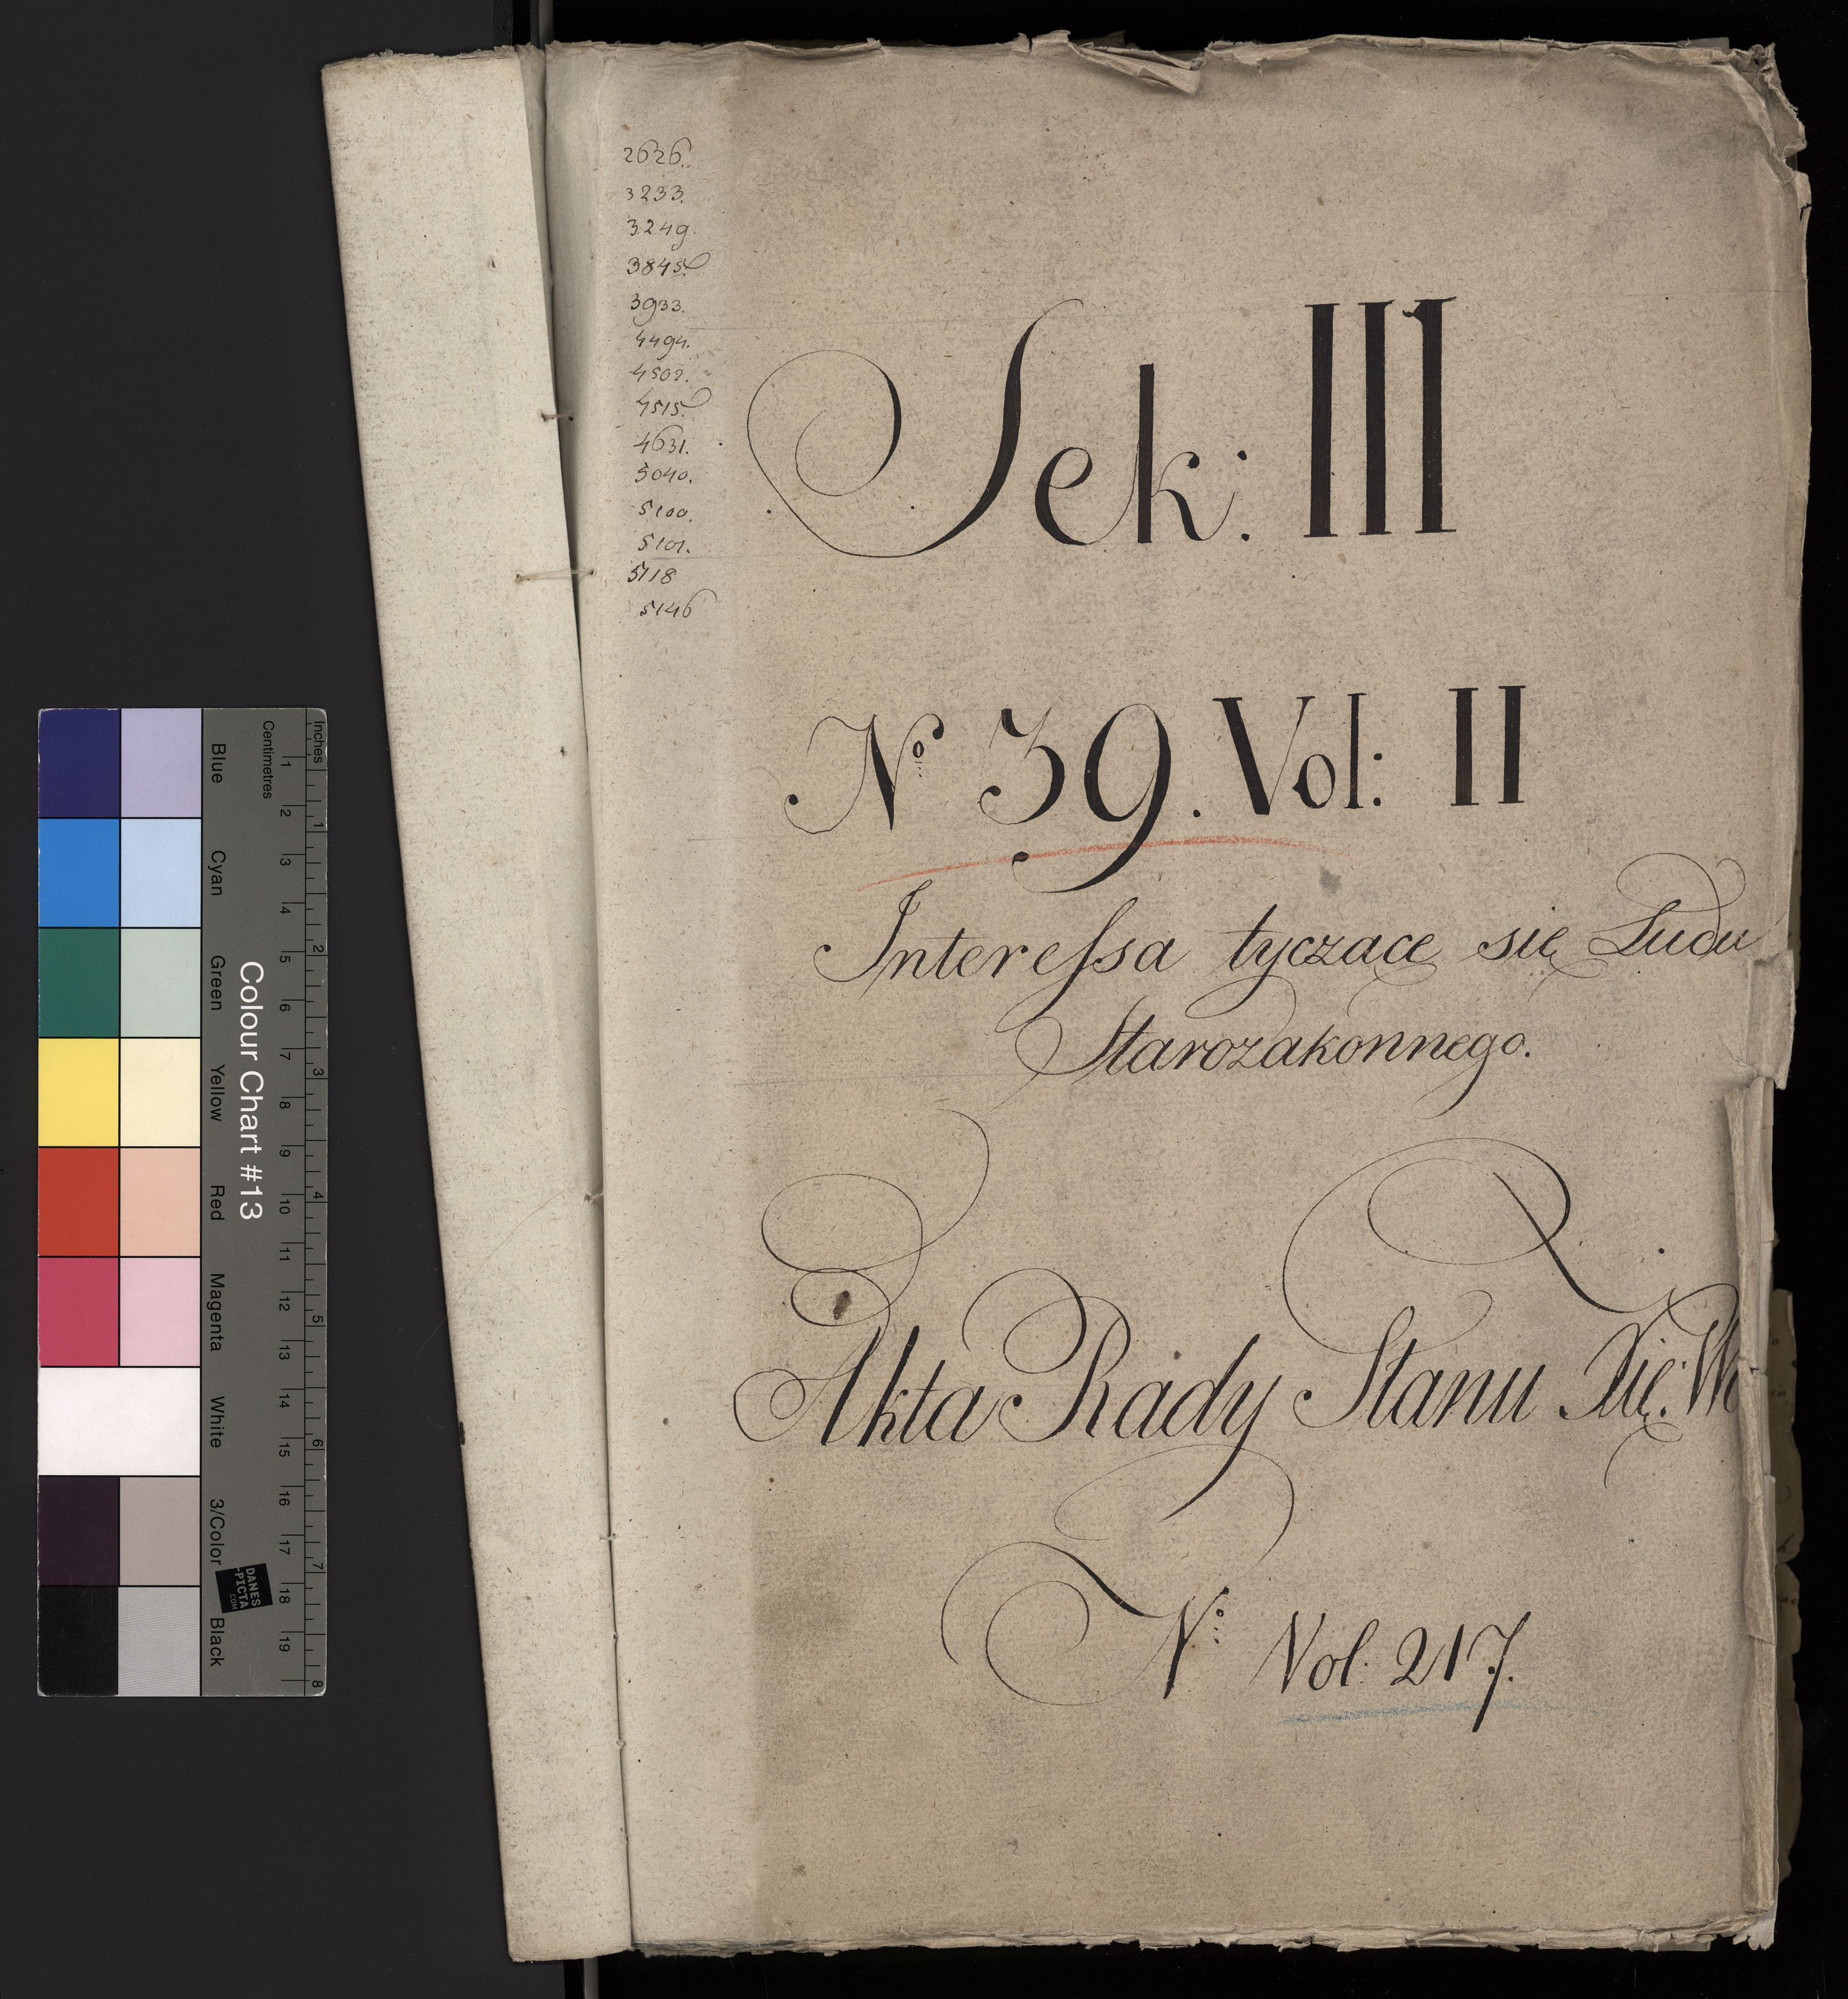 2626.
3233.
3249.
3845.
3933.
4494.
4502.
4515.
4631.
5040.
5100.
5101.
5118
5146
Sek: III
No 39. Vol: II
Interessa tyczące się Ludu
Starozakonnego.
Akta Rady Stanu Xię: W
No Vol. 217.
Inches
Centimetres
1 2 3 4 5 6 7 8
1 2 3 4 5 6 7 8 9 10 11 12 13 14 15 16 17 18 19
Colour Chart #13
Blue Cyan Green Yellow Red Magenta White 3/Color Black
DANES
-PICTA
.COM